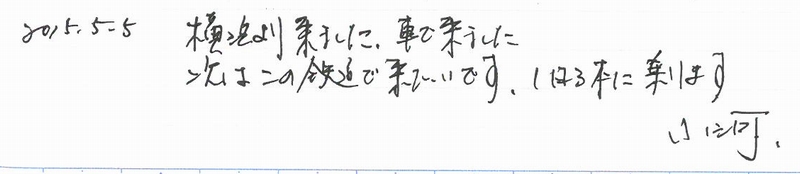 2015.5.5 横浜より来ました、車で来ました
次はこの鉄道で来たいです、 に乗ります